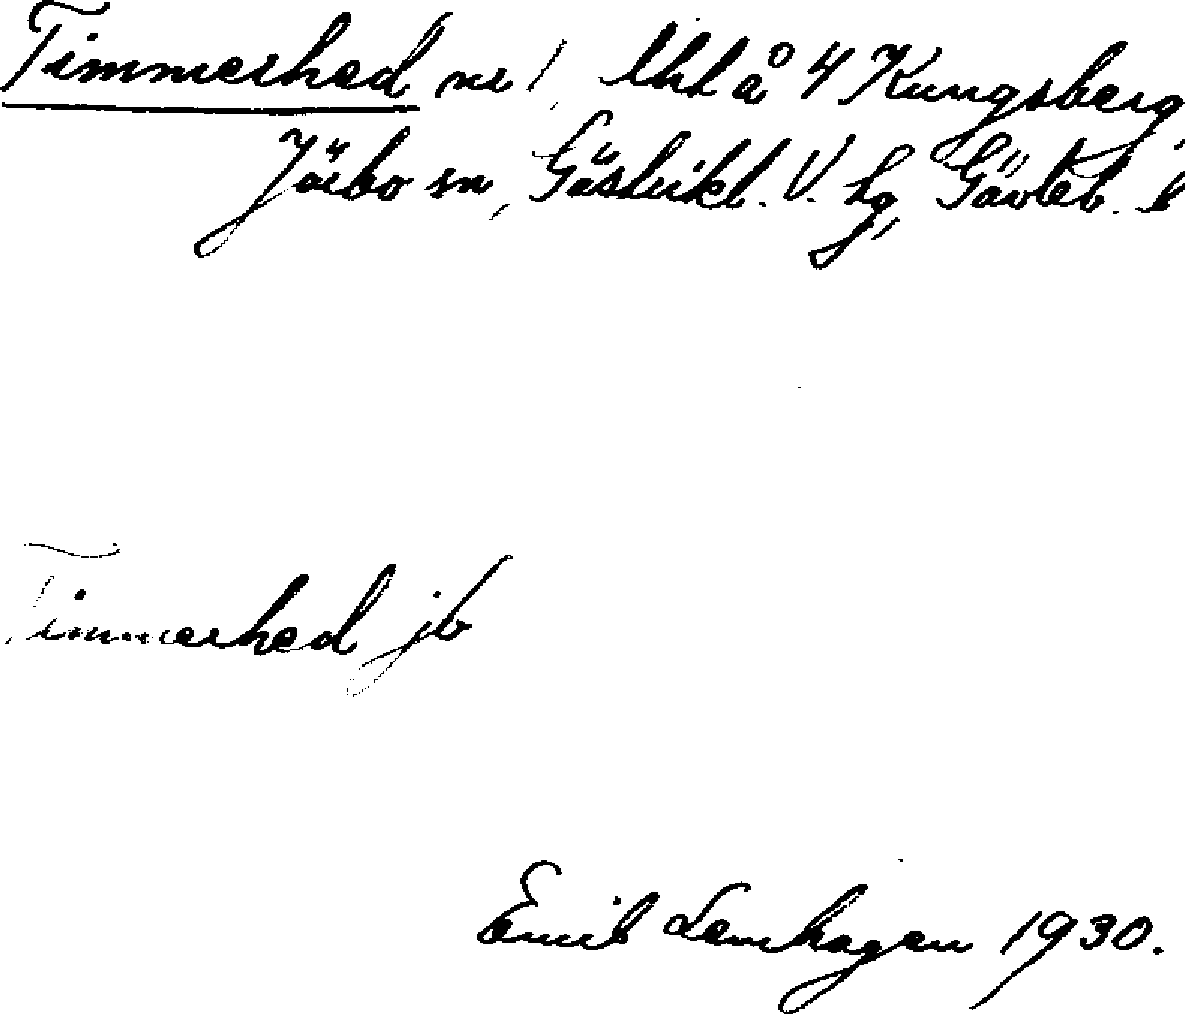 Timmerhed nr 1, Uhl å 4 Kungsberg,
Järbo sn, Gästrikl. V. hg, Gävleb. l
Timmerhed jb
Emil Lemhagen 1930.